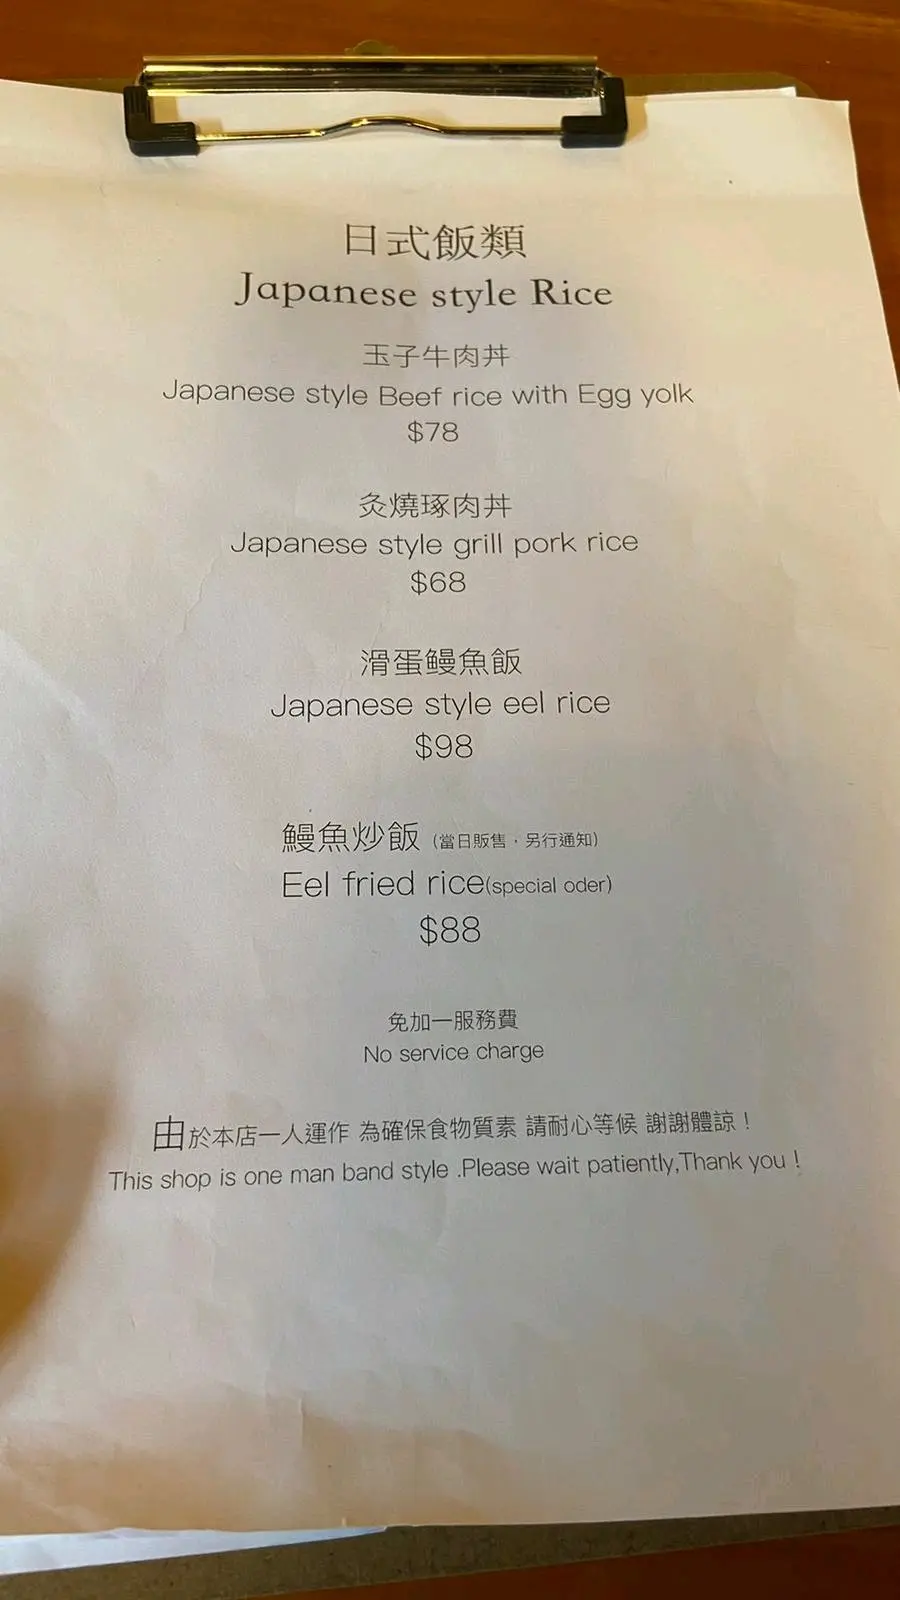 日式飯類
Japanese style Rice
玉子牛肉丼
Japanese style Beef rice with Egg yolk
$78
灸燒琢肉丼
Japanese style grill pork rice
$68
滑蛋鰻魚飯
Japanese style eel rice
$98
鰻魚炒飯 (當日販售，另行通知)
Eel fried rice(special oder)
$88
免加一服務費
No service charge
由於本店一人運作 為確保食物質素 請耐心等候 謝謝體諒！
This shop is one man band style .Please wait patiently,Thank you！